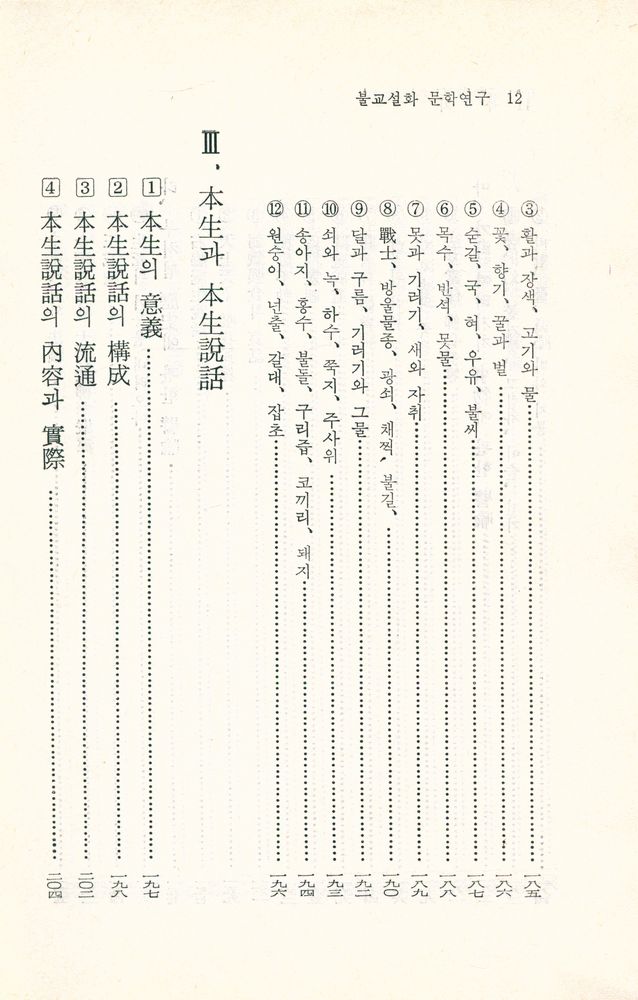 불교설화 문학연구 12
③ 활과 장색, 고기와 물 …… 一八五
④ 꽃, 향기, 꿀과 벌 …… 一八六
⑤ 숟갈, 국, 혀, 우유, 불씨 …… 一八七
⑥ 목수, 반석, 못물 …… 一八八
⑦ 못과 기러기, 새와 자취 …… 一八九
⑧ 戰士, 방울물종, 광쇠, 채찍, 불길, …… 一九〇
⑨ 달과 구름, 기러기와 그물 …… 一九二
⑩ 쇠와 녹, 하수, 쭉지, 주사위 …… 一九三
⑪ 송아지, 홍수, 불돌, 구리즙, 코끼리, 돼지 …… 一九四
⑫ 원숭이, 넌출, 갈대, 잡초 …… 一九六
Ⅲ, 本生과 本生說話
1 本生의 意義 …… 一九七
2 本生說話의 構成 …… 一九八
3 本生說話의 流通 …… 二〇二
4 本生說話의 內容과 實際 …… 二〇四